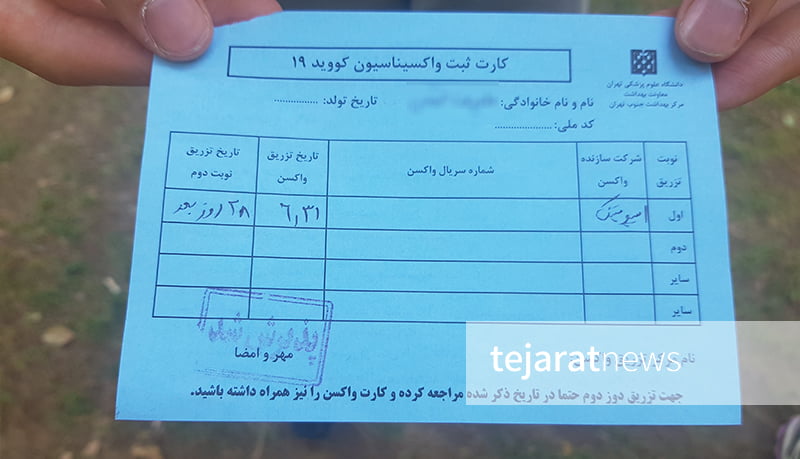 کارت ثبت واکسیناسیون کووید ۱۹
دانشگاه علوم پزشکی تهران
معاونت بهداشت
مرکز بهداشت جنوب تهران
نام و نام خانوادگی: تاریخ تولد: ................
کد ملی: ....................
نوبت تزریق
شرکت سازنده واکسن
شماره سریال واکسن
تاریخ تزریق واکسن
تاریخ تزریق نوبت دوم
اول ۶,۳۱ ۲۸ روز بعد
دوم
سایر
سایر
پذیرش شد
مهر و امضا
نام
tejaratnews
جهت تزریق دوز دوم حتما در تاریخ ذکر شده مراجعه کرده و کارت واکسن را نیز همراه داشته باشید.